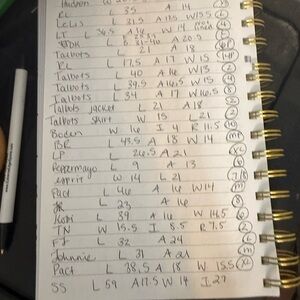 Hudson
RL L 35 A 14
LeLis L 21.5 A 17.5 W 15.5
LT L 36.5 A 18 W 14
L 31-40 A 20.5
Talbots L 21 A 18
RL L 17.5 A 17 W 15
Talbots L 40 A 16 W 13
Talbots L 39.5 A 16.5 W 15
Talbots L 34 A 17 W 16.5
Talbots jacket L 21 A 18
Talbots skirt W 15 L 21 2
Boden W 16 I 4 R 11.5
BR L 43.5 A 18 W 14
LP L 26.5 A 21 XL
Peppermayo L 9 A 13 6
esprit W 14 L 21 7/8
Pact L 46 A 16 W 14 m
L 23 A 16
L 39 A 16 W 14.5 6
TN W 15.5 I 8.5 R 7.5 2
FJ L 32 A 24 L
Johnnie L 31 A 21 m
Pact L 38.5 A 18 W 15.5 XL
SS L 59 A 17.5 W 14 I 27